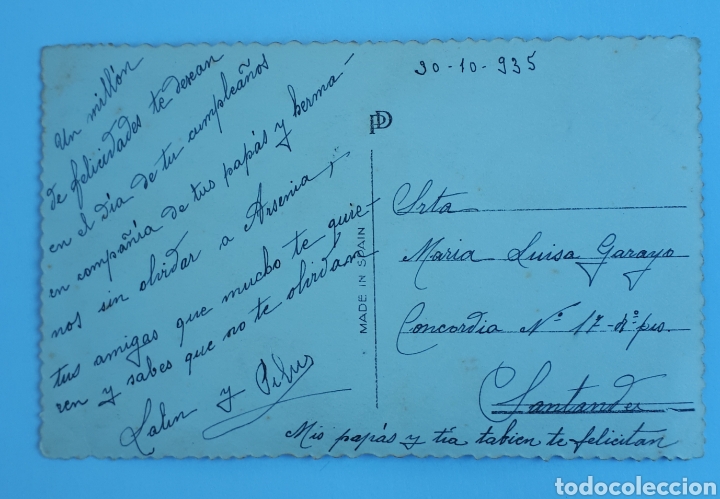 Un millón
de felicidades te desean
en el día de tu cumpleaños
en compañía de tus papás y herma-
nos sin olvidar a Arsenia,
tus amigas que mucho te quie-
ren y sabes que no te olvidan
y
30-10-935
PD
MADE IN SPAIN
Srta
Maria Luisa Garayo
Concordia Nº 17-
Santander
Mis papás y tía tabien te felicitan
todocoleccion